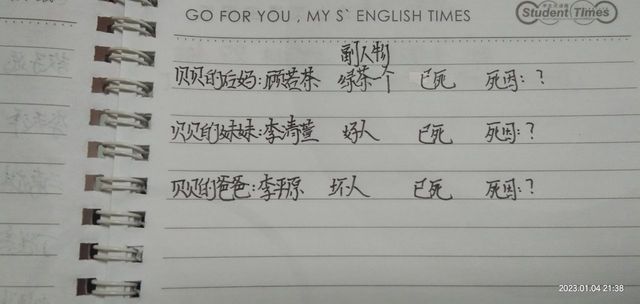 GO FOR YOU , MY S` ENGLISH TIMES
Student Times
副人物
贝贝的后妈:顾若茶 绿茶一个 已死 死因:?
贝贝的妹妹:李清萱 好人 已死 死因:?
贝贝的爸爸:李平原 坏人 已死 死因:?
2023.01.04 21:38